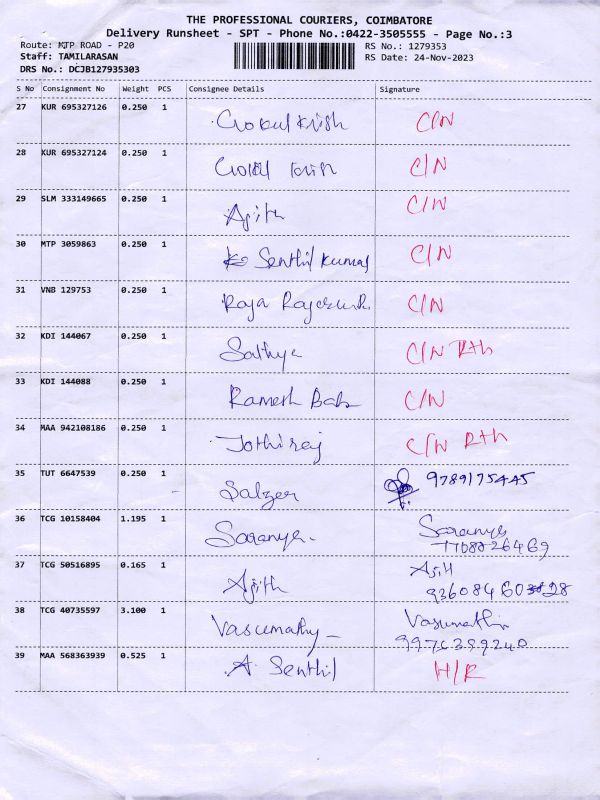 THE PROFESSIONAL COURIERS, COIMBATORE
Delivery Runsheet - SPT - Phone No.:0422-3505555 - Page No.:3
Route: MTP ROAD - P20 RS No.: 1279353
Staff: TAMILARASAN RS Date: 24-Nov-2023
DRS No.: DCJB127935303
S No Consignment No Weight PCS Consignee Details Signature
27 KUR 695327126 0.250 1 Gokul Krish C/N
28 KUR 695327124 0.250 1 Gokul Krish C/N
29 SLM 333149665 0.250 1 Ajith C/N
30 MTP 3059863 0.250 1 Senthil Kumar C/N
31 VNB 129753 0.250 1 Raja C/N
32 KDI 144067 0.250 1 Sathya C/N Rth
33 KDI 144088 0.250 1 Ramesh Bab C/N
34 MAA 942108186 0.250 1 Jothiraj C/N Rth
35 TUT 6647539 0.250 1 Salzer 9789175445
36 TCG 10158404 1.195 1 Saranya Saranya
37 TCG 50516895 0.165 1 Ajith Ajit
38 TCG 40735597 3.100 1 Vasumathy Vasumathi
39 MAA 568363939 0.525 1 A. Senthil H/R